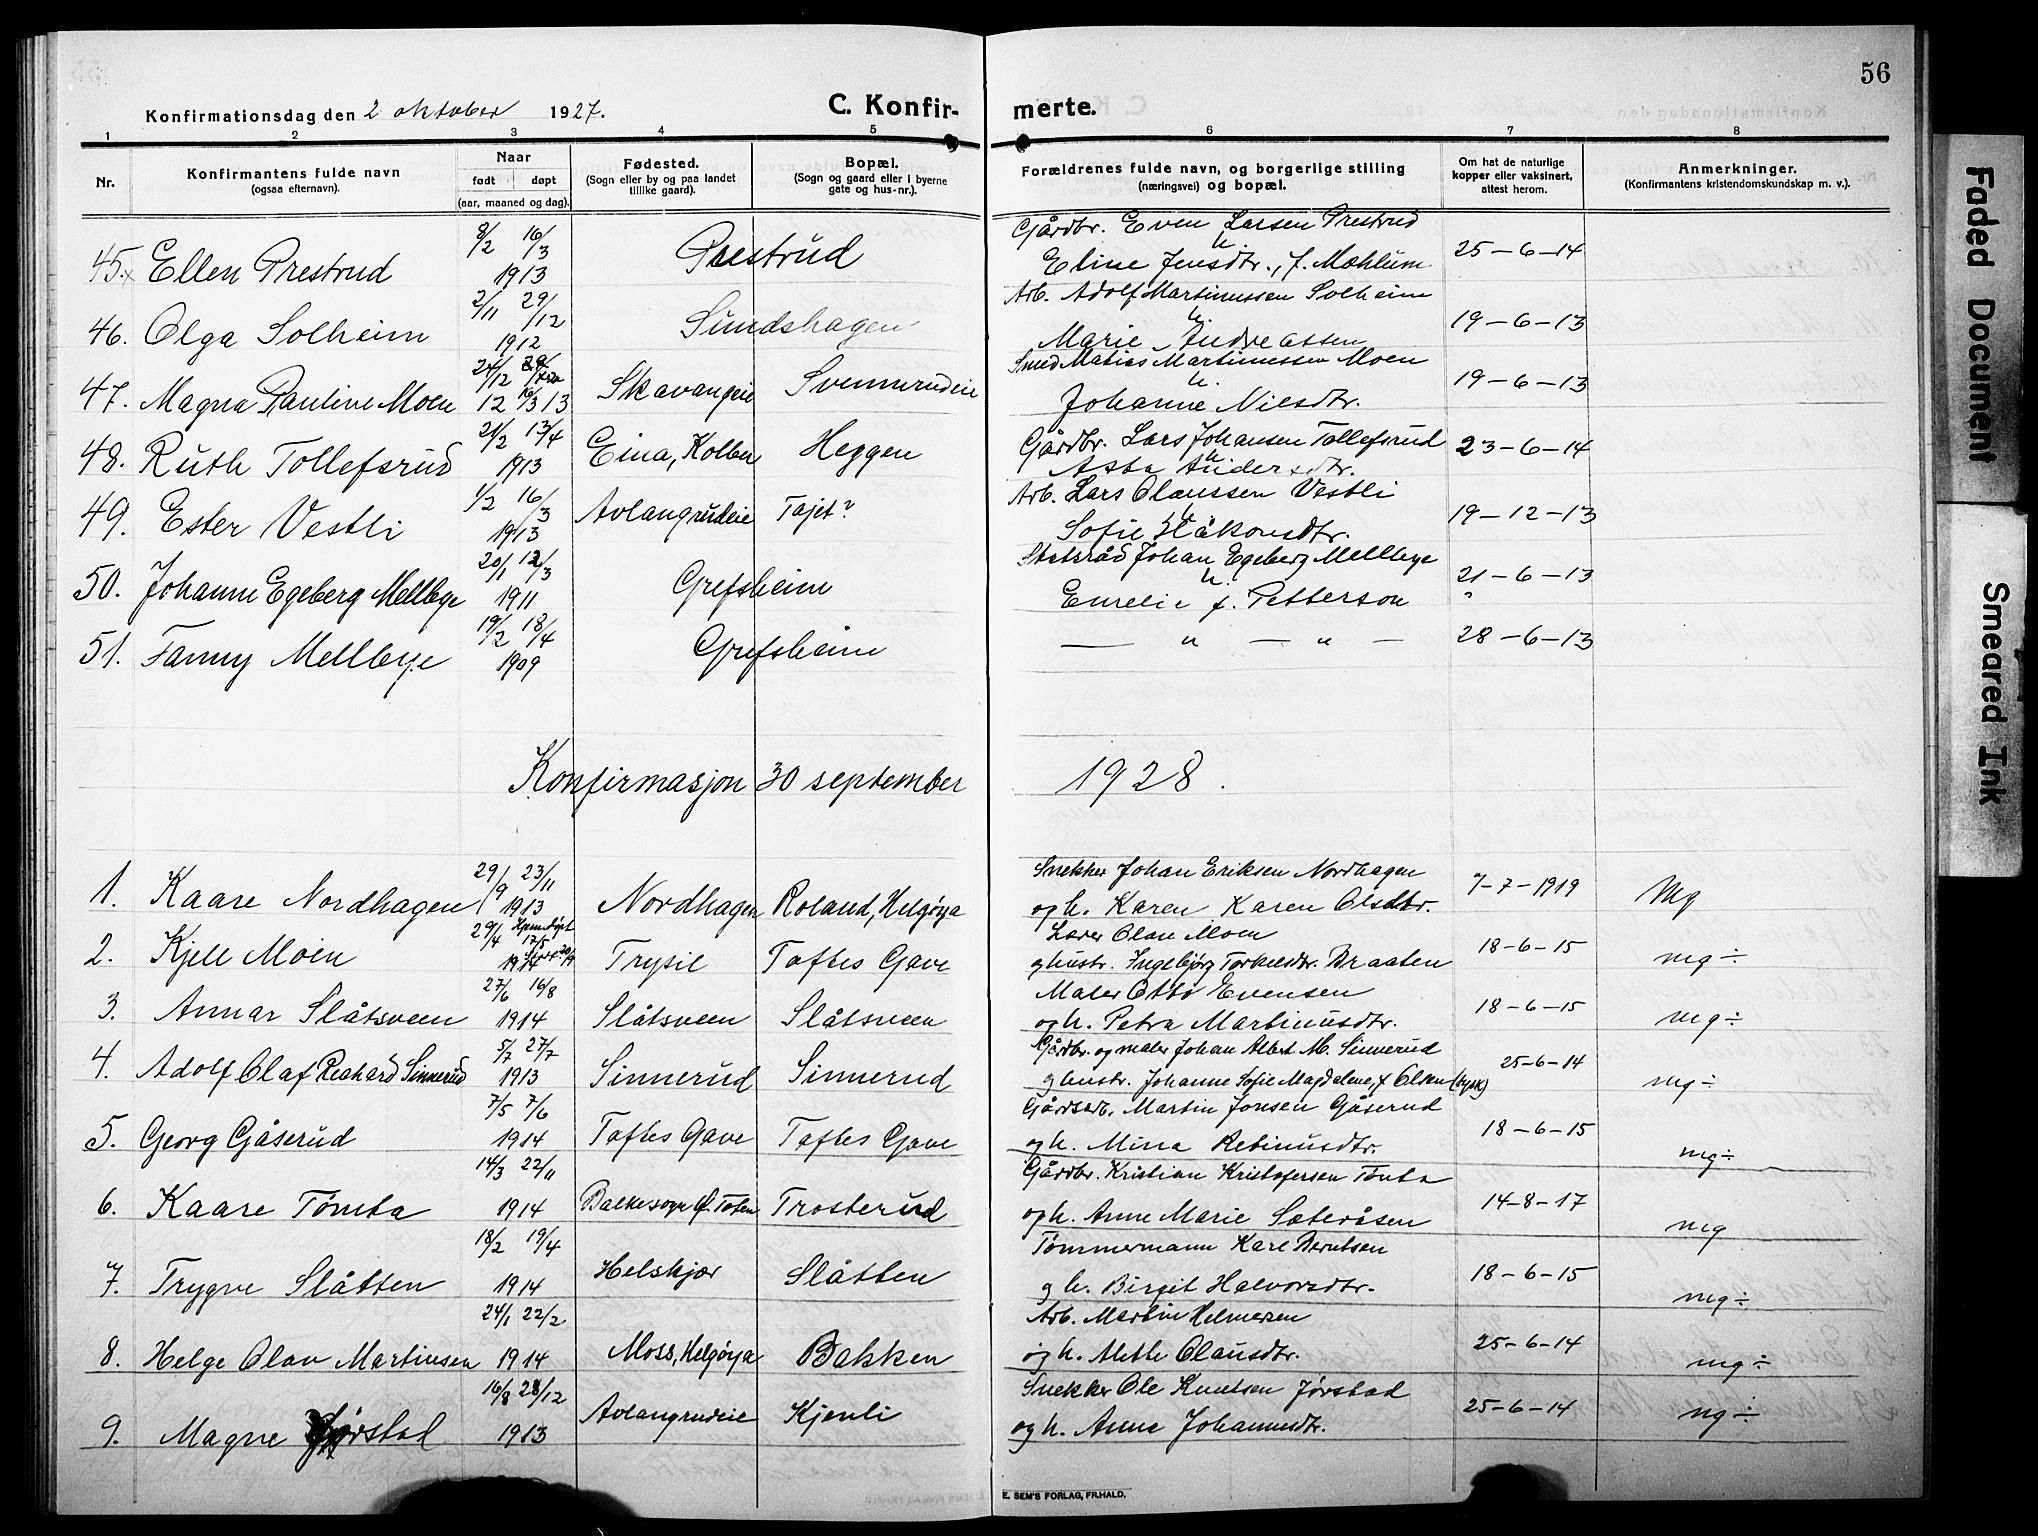 56
Konfirmationsdag den 2 oktober 1927. C. Konfir-merte.
1 2 3 4 5 6 7 8
Nr. Konfirmantens fulde navn (ogsaa efternavn). Naar født døpt (aar, maaned og dag). Fødested. (Sogn eller by og paa landet tillike gaard). Bopæl. (Sogn og gaard eller i byerne gate og hus-nr.). Forældrenes fulde navn, og borgerlige stilling (næringsvei) og bopæl. Om hat de naturlige kopper eller vaksinert, attest herom. Anmerkninger. (Konfirmantens kristendomskundskap m. v.).
8/2 16/3 Gårdbr. Even Larsen Prestrud
45. Ellen Prestrud 1913 Prestrud Eline Jensdtr., f. Mæhlum 25-6-14
2/11 29/12 Arb. Adolf Martinussen Solheim
46. Olga Solheim 1912 Sundshagen Marie Andreassen 19-6-13
24/12 Smed Matias Martinussen Moen
47. Magna Pauline Moen 12 16/3 13 Skavangeie Svennerudeie Johanne Nilsdtr. 19-6-13
21/2 13/4 Gårdbr. Lars Johansen Tollefsrud
48. Ruth Tollefsrud 1913 Eina, Kolbu Heggen Asta Andersdtr. 23-6-14
1/2 16/3 Arb. Lars Olaussen Vestli
49. Ester Vestli 1913 Avlangrudeie Tajet? Sofie Håkonsdtr. 19-12-13
20/1 12/3 Statsråd Johan Egeberg Mellbye
50. Johanne Egeberg Mellbye 1911 Grefsheim Emelie f. Petterson 21-6-13
19/2 18/4
51. Fanny Mellbye 1909 Grefsheim — " — " — 28-6-13
Konfirmasjon 30 september 1928.
29/9 23/11 Snekker Johan Eriksen Nordhagen
1. Kaare Nordhagen 1913 Nordhagen Roland, Helgøya og h. Karen Karen Olsdtr. 7-7-1919 Mg
29/4 Hjemmedøpt 17/5 Lærer Olav Moen
2. Kjell Moen 1914 Trysil Toftes Gave og hustr. Ingebjørg Torkelsdtr. Braaten 18-6-15 mg÷
27/6 16/8 Maler Otto Evensen
3. Annar Slåtsveen 1914 Slåtsveen Slåtsveen og h. Petra Martinusdtr. 18-6-15 mg÷
5/7 27/7 Gårdbr. og maler Johan Albert M. Sinnerud
4. Adolf Olaf Reahard Sinnerud 1913 Sinnerud Sinnerud og hustr. Johanne Sofie Magdalene, f Olsen (tysk) 25-6-14 mg÷
7/5 7/6 Gårdsarb. Martin Jonsen Gåserud
5. Georg Gåserud 1914 Toftes Gave Toftes Gave og h. Mina Rebinusdtr. 18-6-15 mg÷
14/3 22/11 Gårdbr. Kristian Kristofersen Tömta
6. Kaare Tömta 1914 Balke sogn Ø. Toten Trosterud og h. Anne Marie Sæteråsen 14-8-17 mg
18/2 19/4 Tømmermann Karl Berntsen
7. Trygve Slåtten 1914 Helskjær Slåtten og h. Birgit Halvorsdtr. 18-6-15 mg÷
24/1 22/2 Arb. Martin Helmersen
8. Helge Olav Martinsen 1914 Moss, Helgøya Bakken og h. Mette Olausdtr. 25-6-14 mg÷
16/8 28/12 Snekker Ole Knutsen Jørstad
9. Magne Jørstad 1913 Avlangrudeie Kjenli og h. Anne Johannesdtr. 25-6-14 ng÷
E. SEM'S FORLAG, FR.HALD.
Faded Document
Smeared Ink